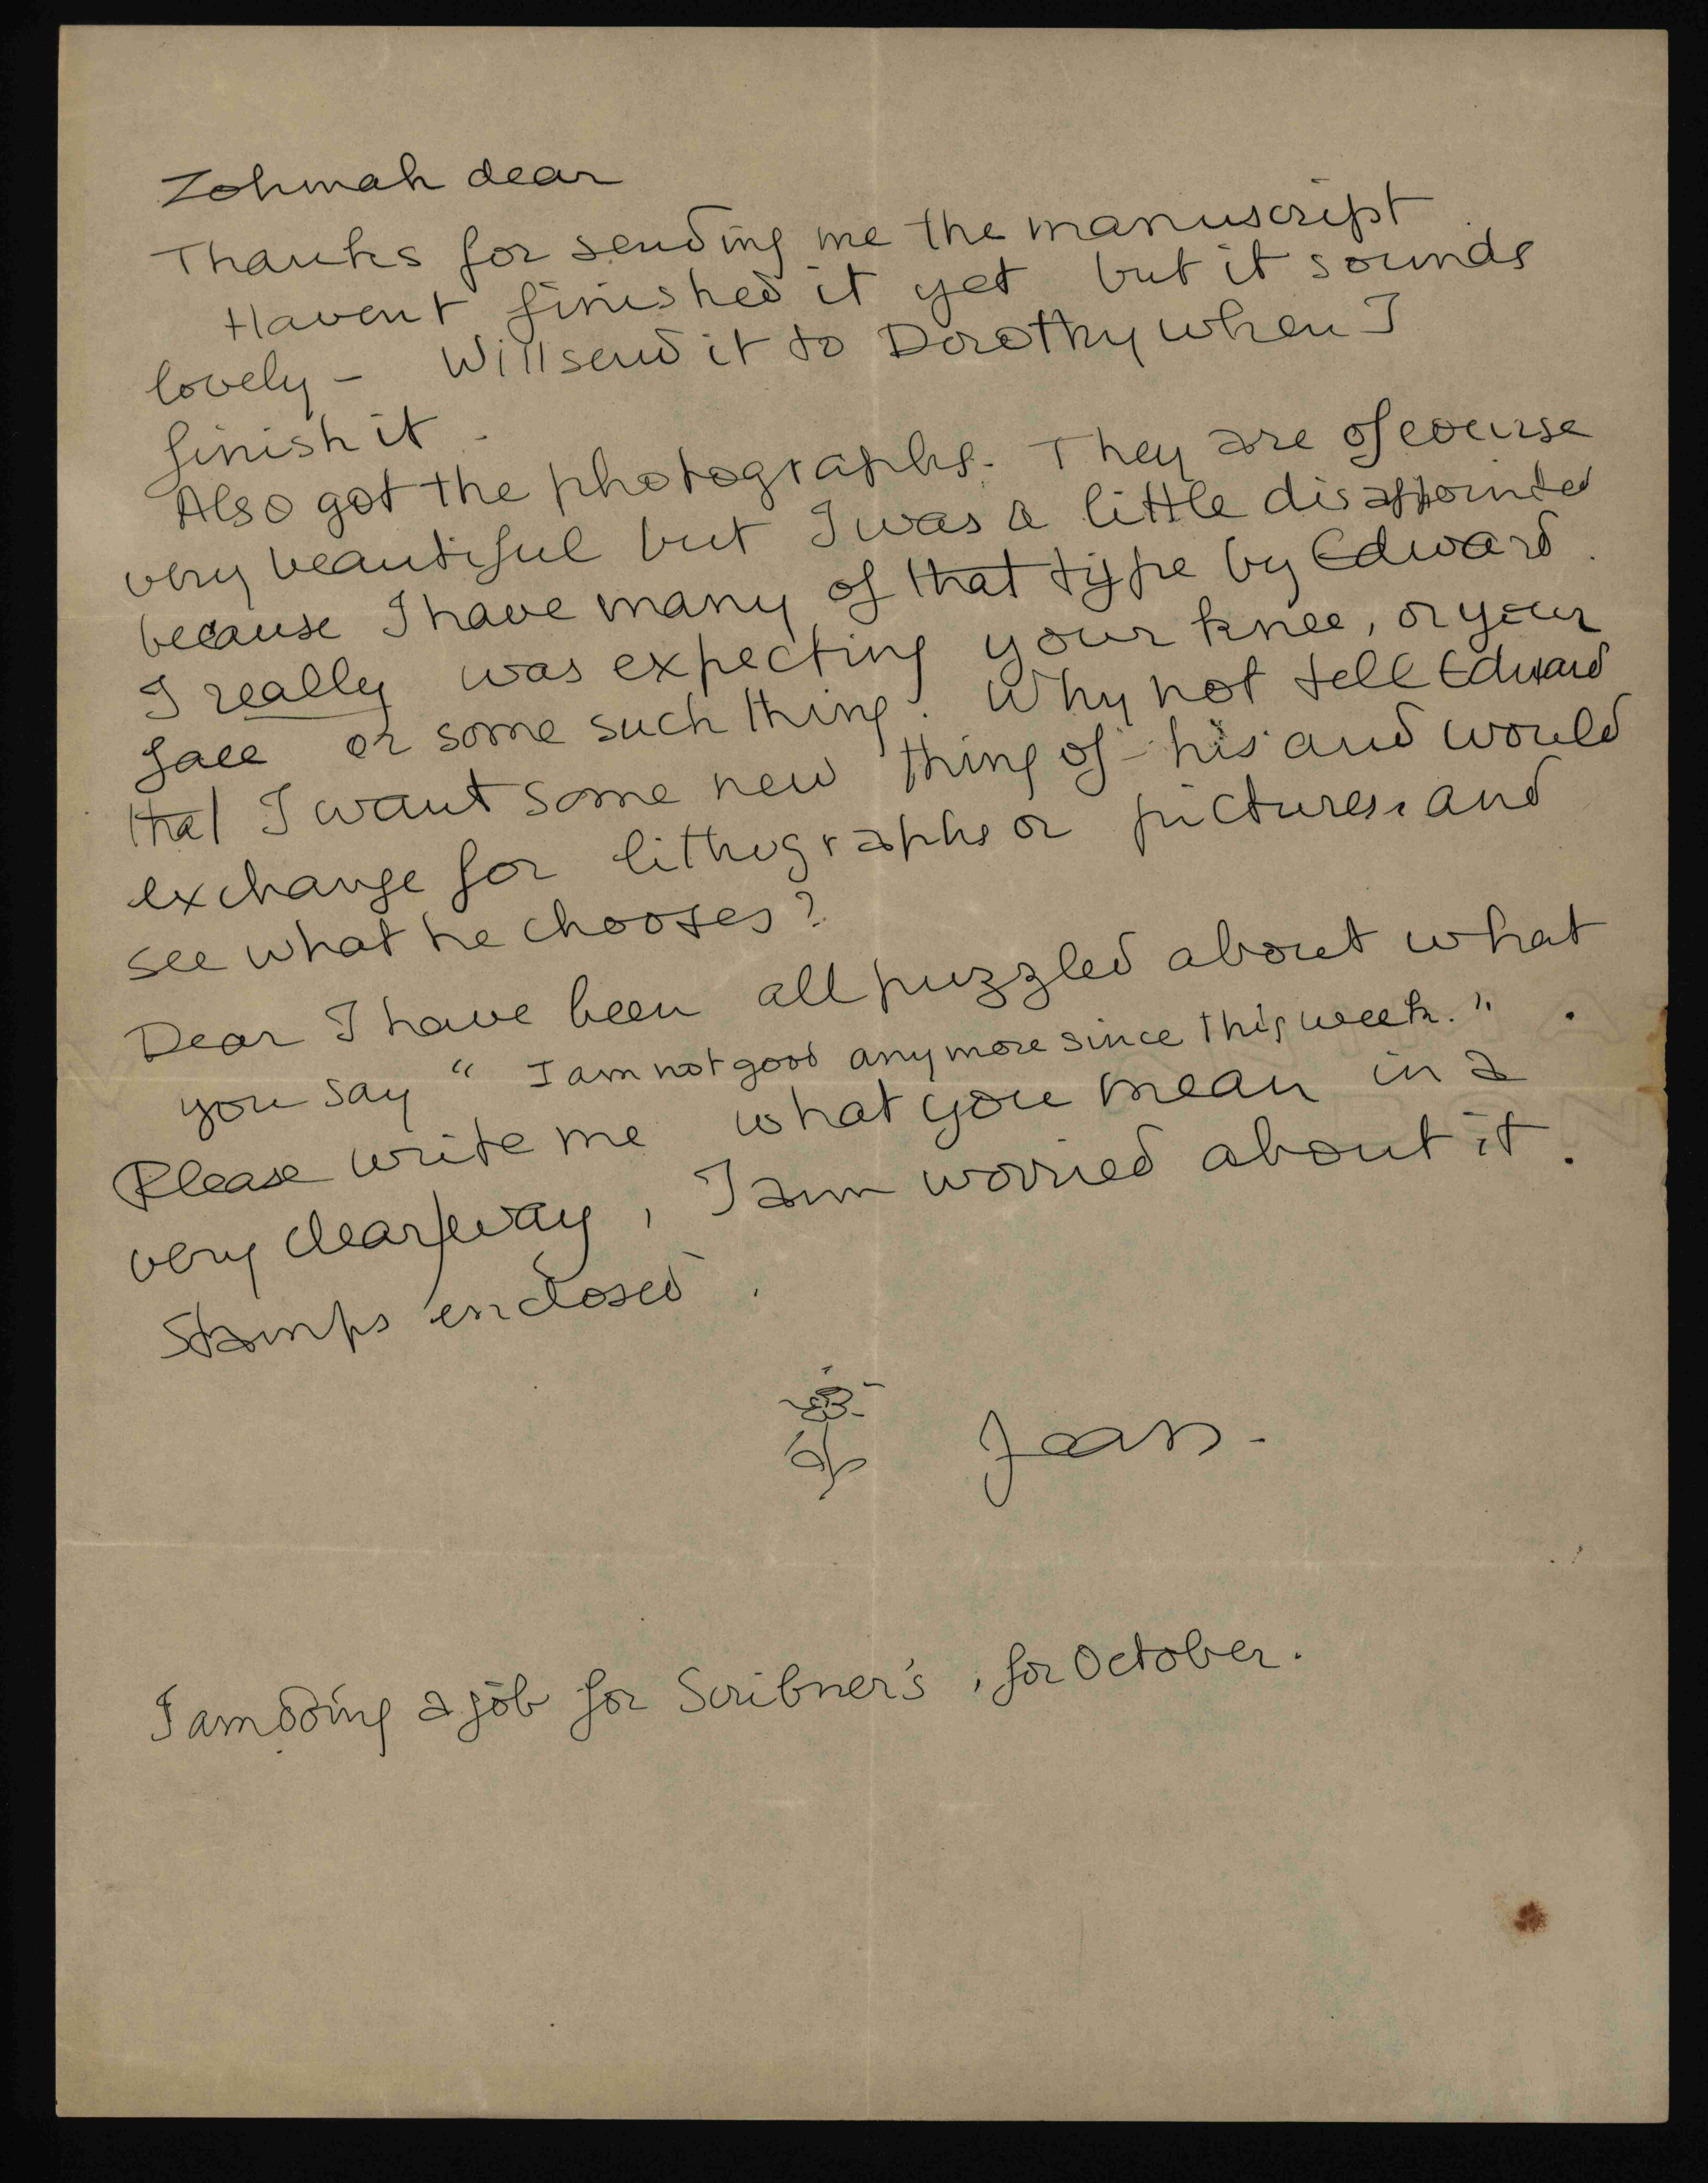 Zohmah dear
Thanks for sending me the manuscript
Havent finished it yet but it sounds
lovely – Will send it to Dorothy when I
finish it.
Also got the photographs. They are of course
very beautiful but I was a little disappointed
because I have many of that type by Edward.
I really was expecting your knee, or your
face or some such thing. Why not tell Edward
that I want some new thing of his and would
exchange for lithographs or pictures and
see what he chooses?
Dear I have been all puzzled about what
you say " I am not good anymore since this week." .
Please write me what you mean in a
very clear way, I am worried about it.
Stamps enclosed.
Jean.
I am doing a job for Scribner's, for October.